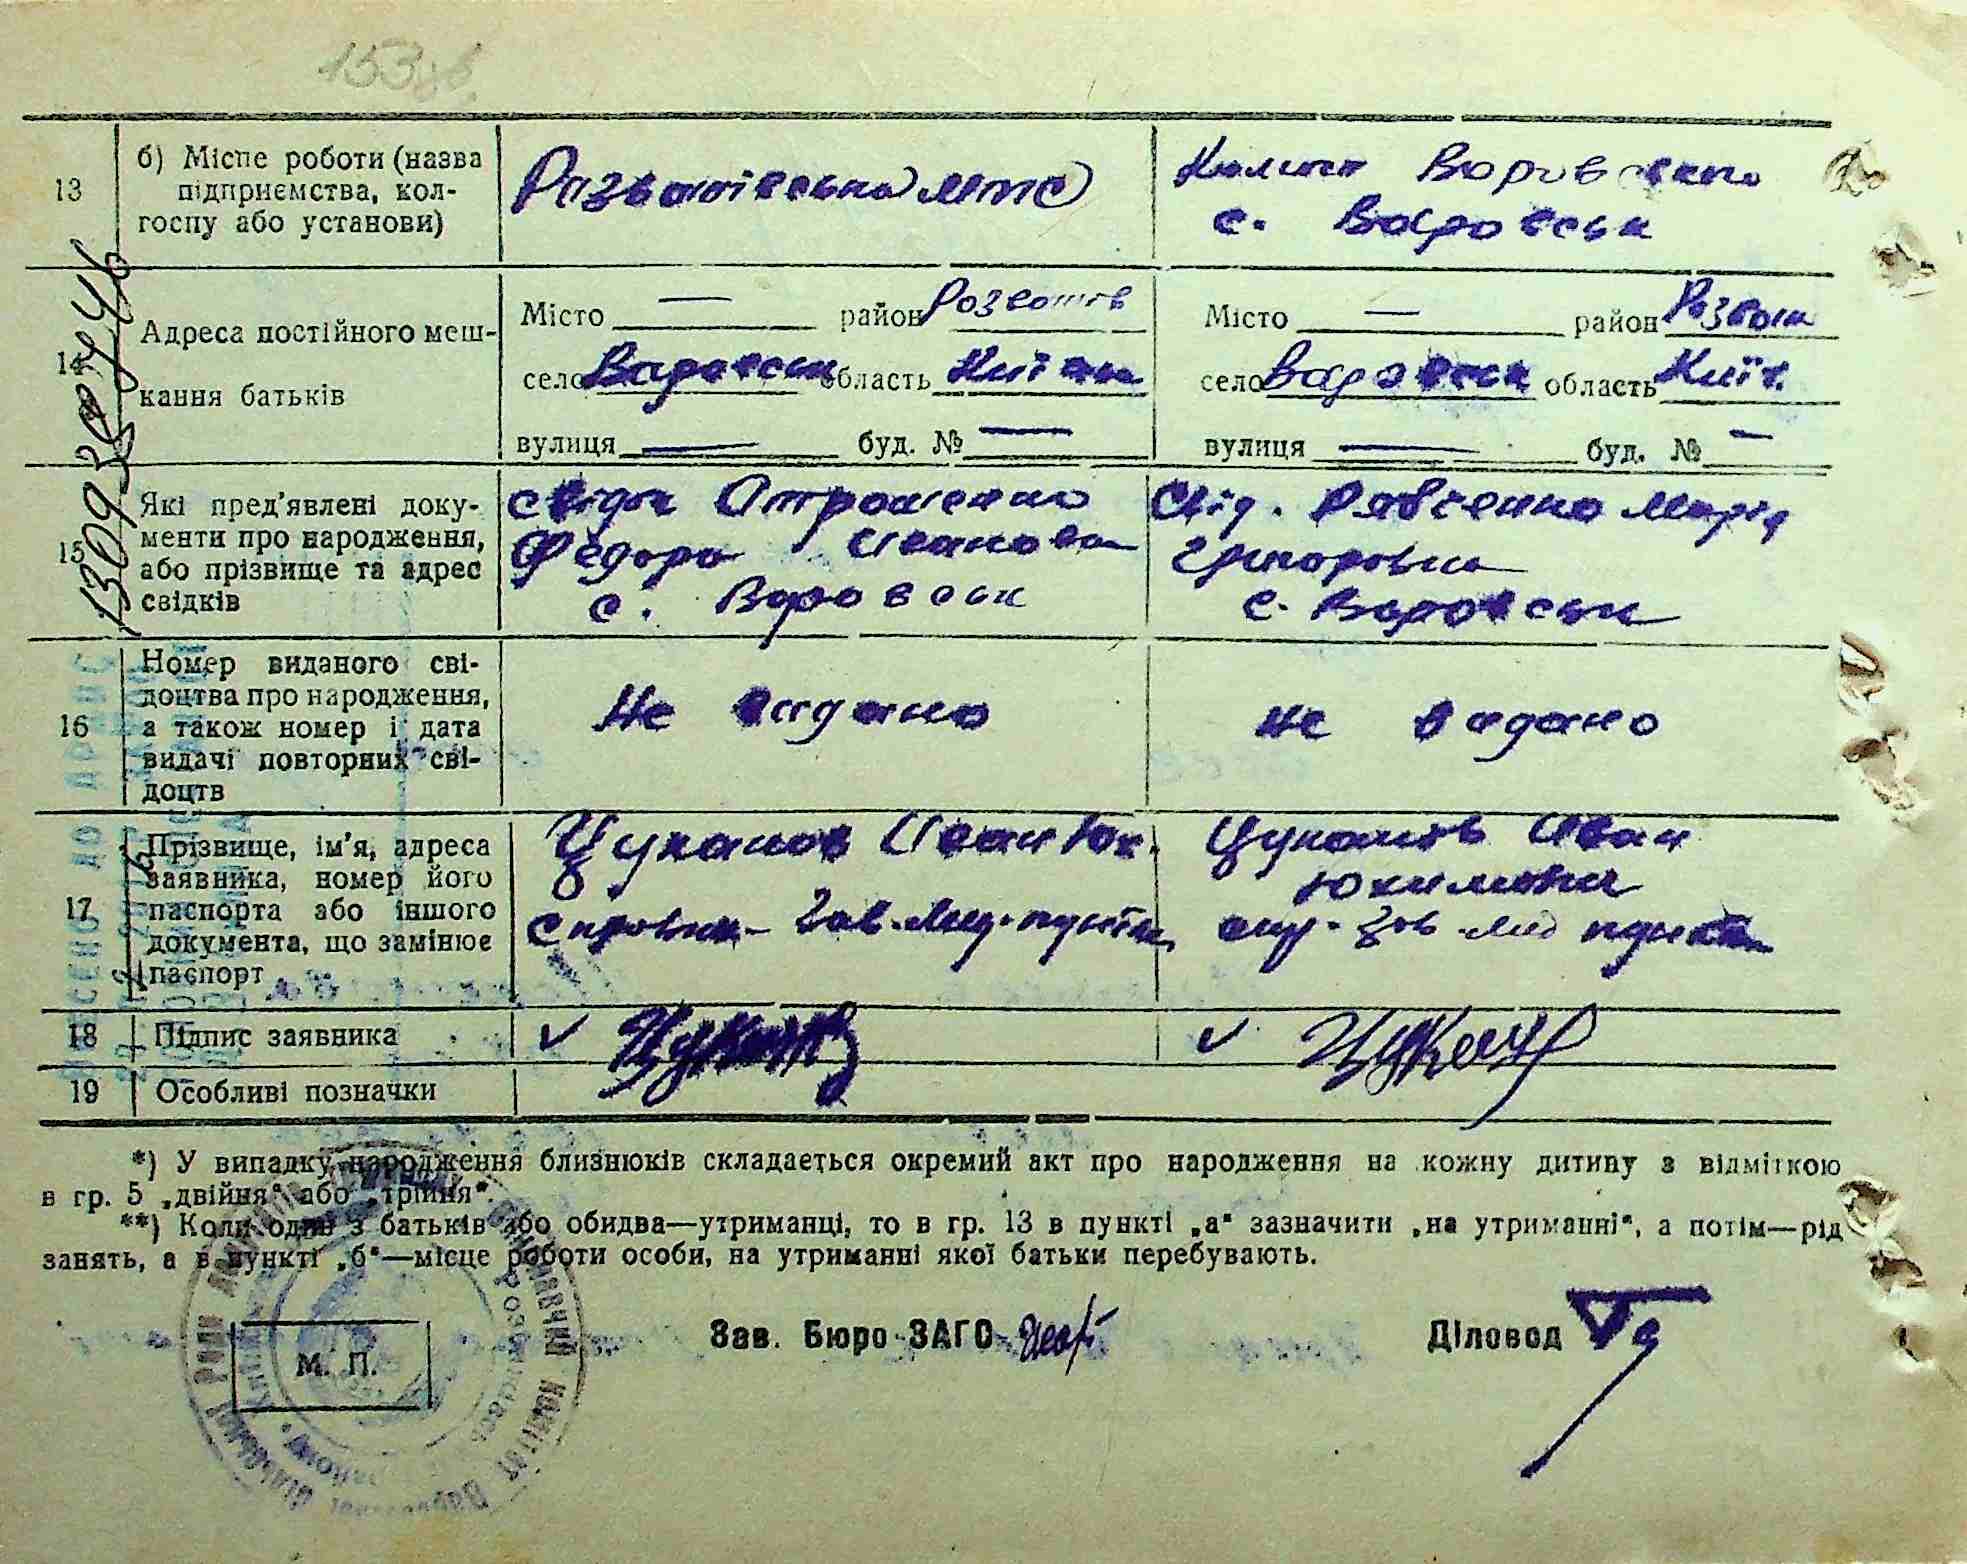 153зв.
13
б) Місце роботи (назва
підприємства, кол-
госпу або установи)
Розважівська мтс
с. Варовськ
14
Адреса постійного меш-
кання батьків
Місто — район Розважів
село Варовськ область Київськ
вулиця — буд. № —
Місто — район Розваж
село Варовськ область Київ.
вулиця — буд. № —
15
Які пред'явлені доку-
менти про народження,
або прізвище та адрес
свідків
свідки Атрошенко
Федора Іванова
с. Варовськ
Свід. Рявченко Марія
Григоровна
с. Варовськ
16
Номер виданого сві-
доцтва про народження,
а також номер і дата
видачі повторних сві-
доцтв
Не видано
не видано
17
Прізвище, ім'я, адреса
заявника, номер його
паспорта або іншого
документа, що замінює
паспорт
Цуканов Іван Юх.
справки- Зав. мед. пункта
Цуканов Іван
Юхимович
спр- Зав мед пункта
18
Підпис заявника
19
Особливі позначки
*) У випадку народження близнюків складається окремий акт про народження на кожну дитину з відміткою
в гр. 5 „двійня" або „трійня".
**) Коли один з батьків або обидва—утриманці, то в гр. 13 в пункті „а" зазначити „на утриманні", а потім—рід
занять, а в пункті „б"—місце роботи особи, на утриманні якої батьки перебувають.
М. П.
Зав. Бюро ЗАГС
Діловод